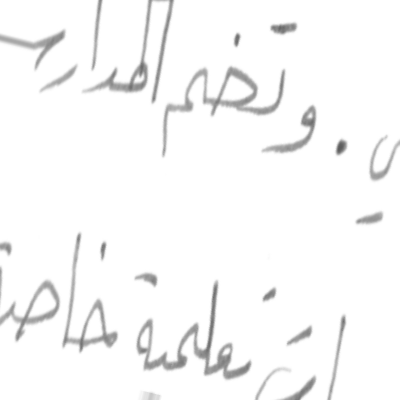 . وتضم المدارس
تعليمية خاصة